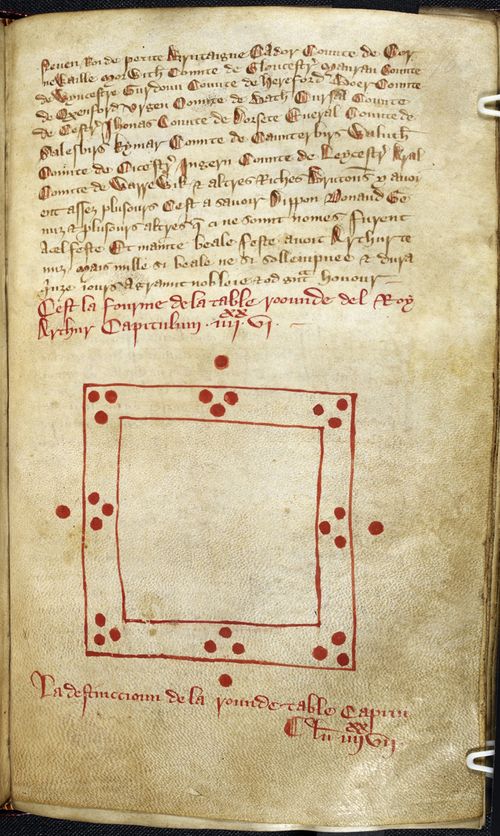 Neuen Roi de petite Brutaigne Cador Counte de Cor
newaille Morwith Counte de Gloucestr̃ Mauran Counte
de Wyncestre Gurdoun Counte de Hereford Boer Counte
de Oxenford Urgen Counte de Bath Cursal Counte
de Cestr̃ Jhonas Counte de Dorsete Eueral Counte de
Salesburs Kymar Counte de Caunterburs Waluth
Counte de Cicestr̃ Jugern Counte de Leycestr̃ Aral
Counte de Warrewik & altres Riches Britouns y auoi
ent assez plusours Cest a sauoir Dippon Donaud Ge
nuz & plusours altres q̃ ci ne sount nomes Furent
a cel feste Et mainte beale feste auoit Arthur te
nuz Mais nulle si beale ne si sollempnee & dura
Jours a graunt nobleie & od gñt honour
C'est la fourme de la table roounde del Roy
Arthur Capitulum .iiii.xx vi.
La destinccioun de la rounde table Capitu
lũ iiii.xx vii.